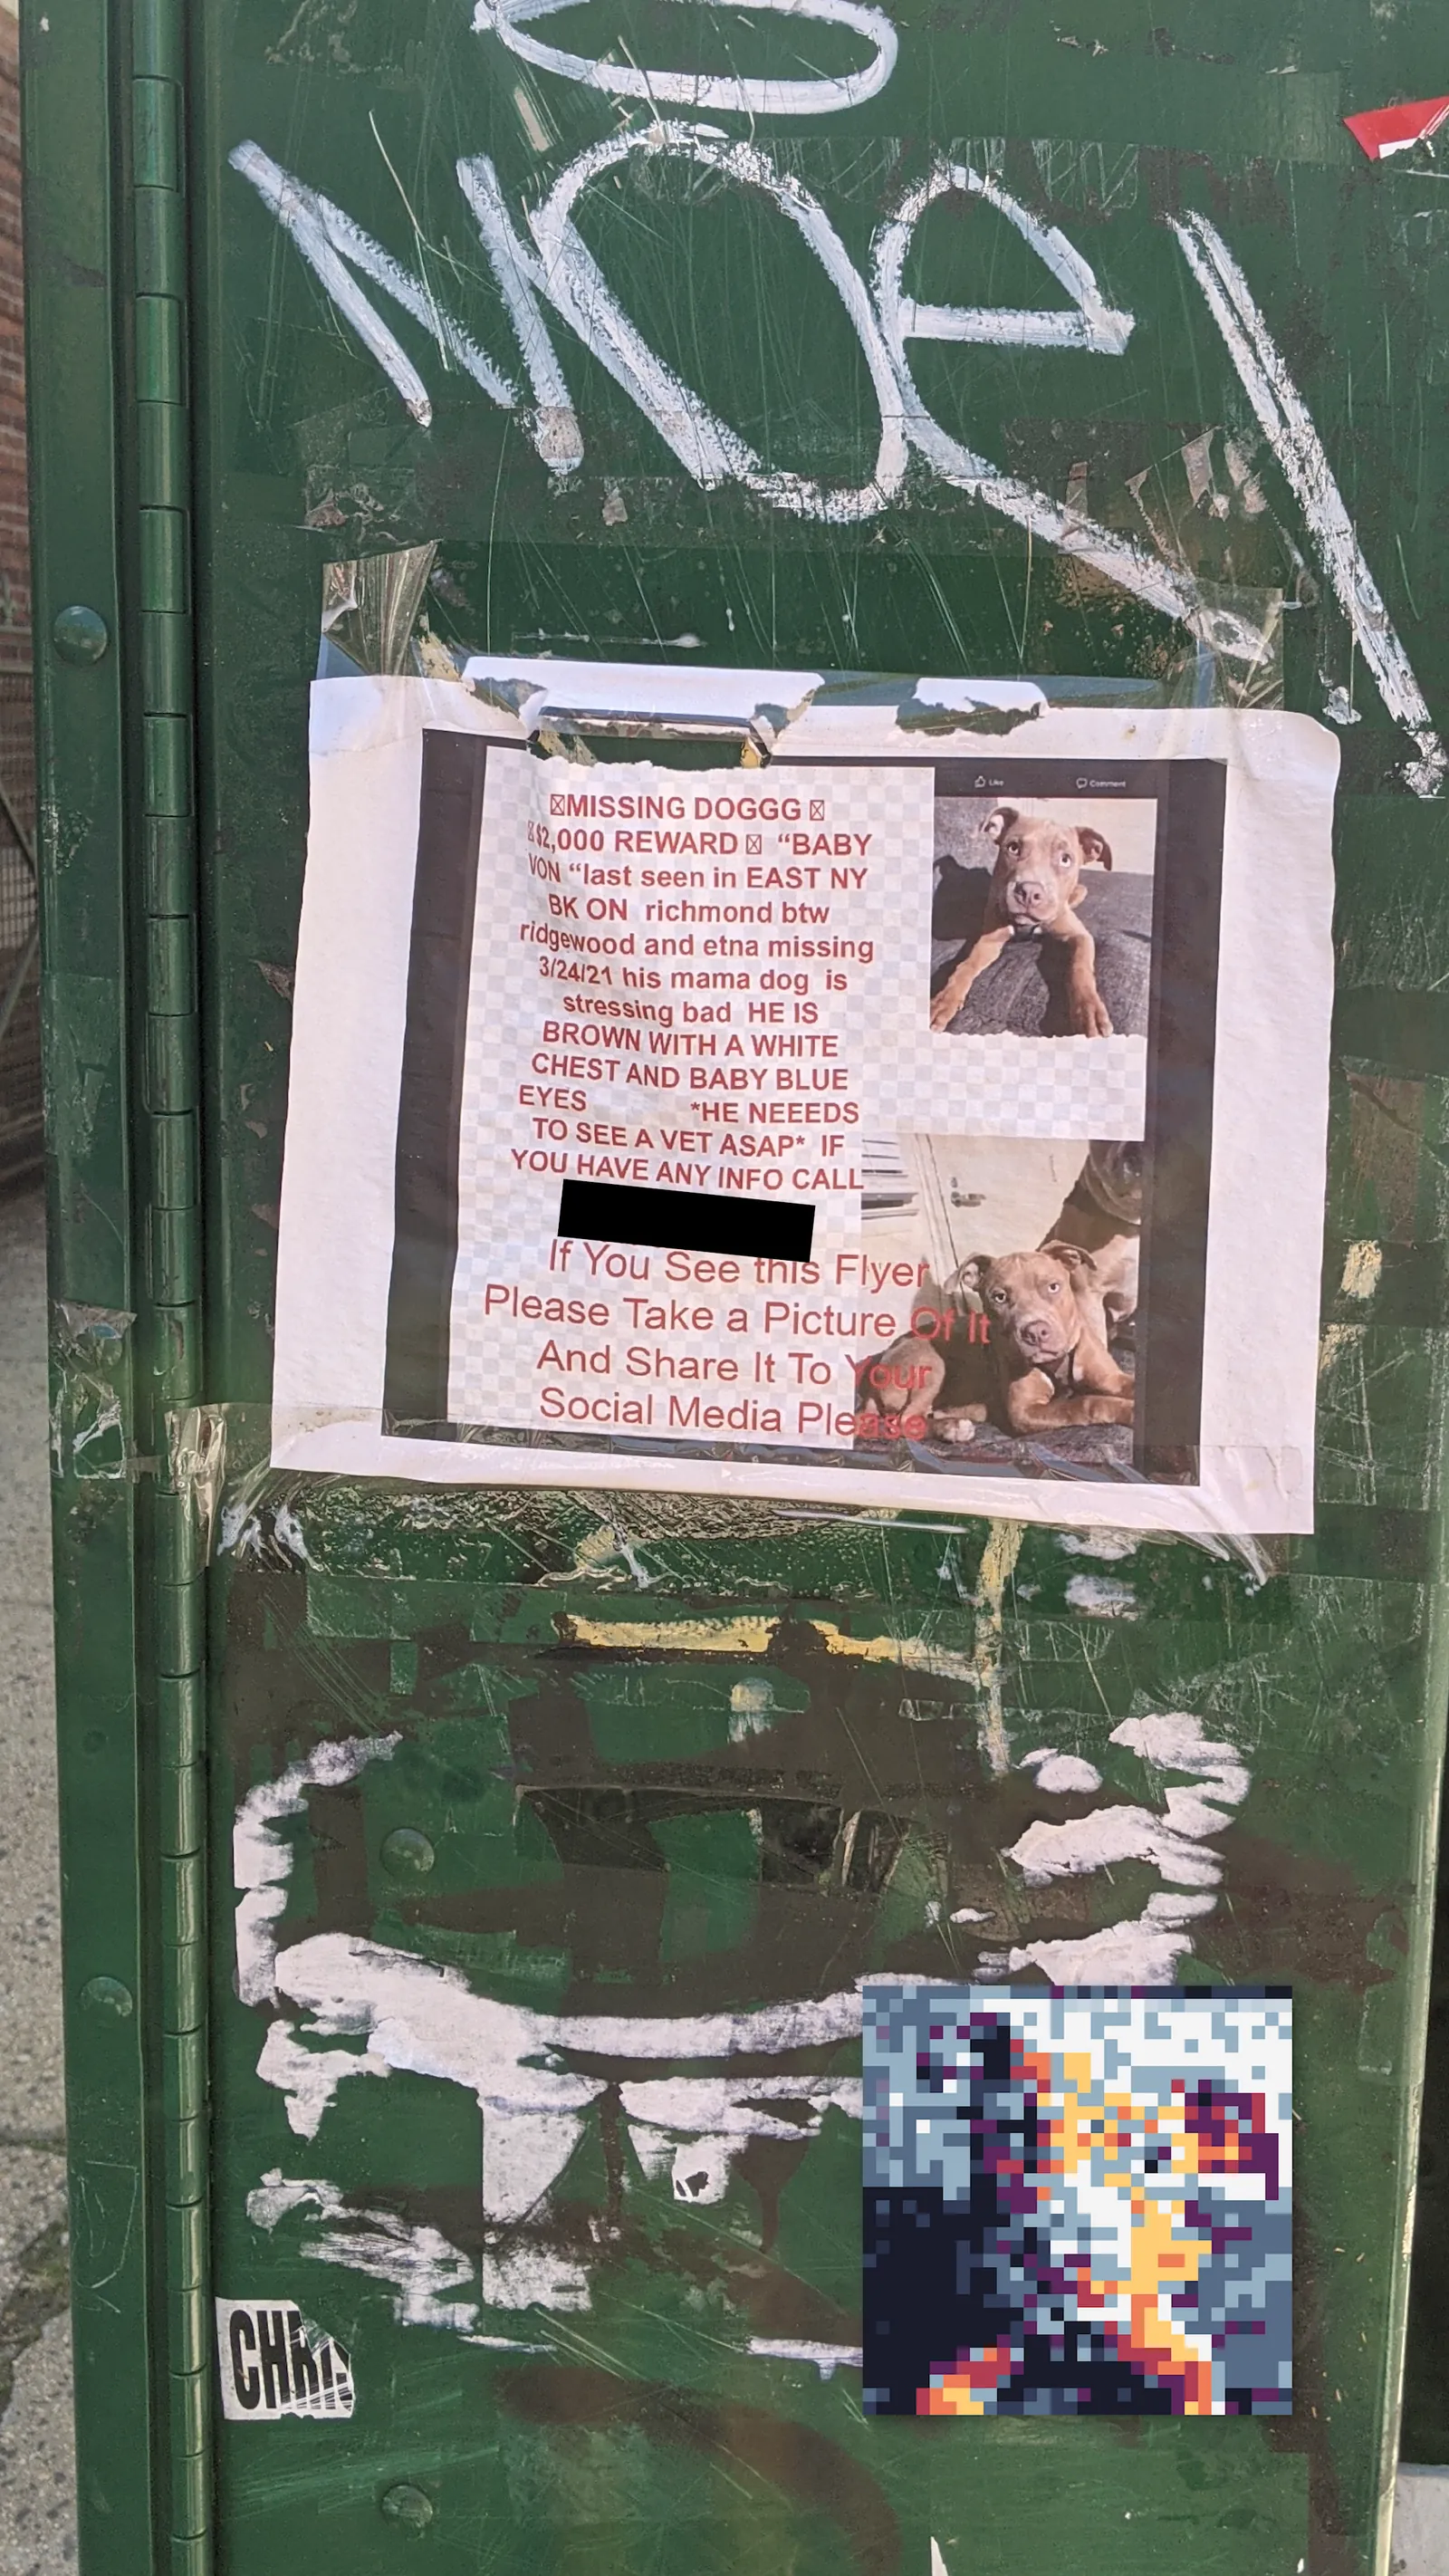 Noe
Like Comment
MISSING DOGGG
$2,000 REWARD “BABY
VON “last seen in EAST NY
BK ON richmond btw
ridgewood and etna missing
3/24/21 his mama dog is
stressing bad HE IS
BROWN WITH A WHITE
CHEST AND BABY BLUE
EYES *HE NEEEDS
TO SEE A VET ASAP* IF
YOU HAVE ANY INFO CALL
If You See this Flyer
Please Take a Picture Of It
And Share It To Your
Social Media Please